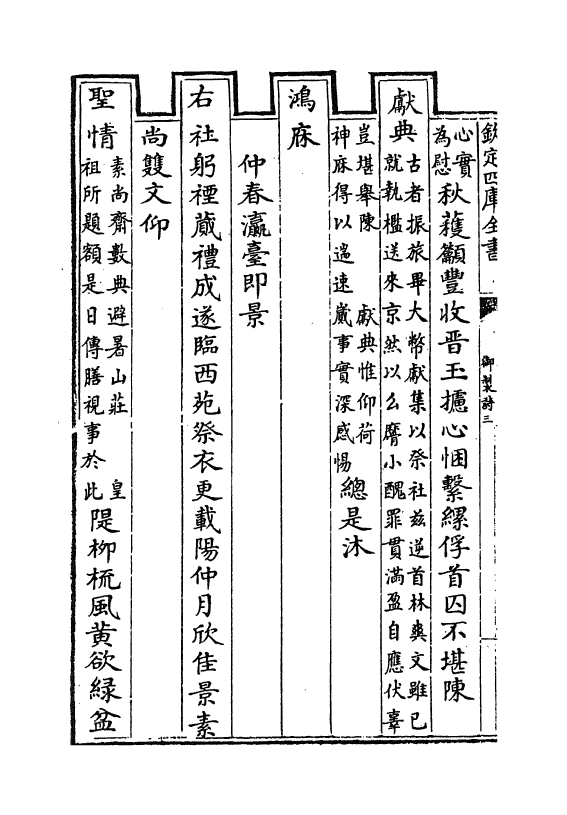 欽定四庫全書
御製詩三
心實
為慰
秋穫籲豐收晋玉攄心悃繫縲俘首囚不堪陳
獻典
古者振旅畢大幣獻集以祭社兹逆首林爽文雖已
就執檻送來京然以么麿小醜罪貫滿盈自應伏辜
豈堪舉陳 獻典惟仰荷
神庥得以遄速蕆事實深感惕
總是沐
鴻庥
仲春瀛臺即景
右社躬禋蕆禮成遂臨西苑祭衣更載陽仲月欣佳景素
尚雙文仰
聖情
素尚齋數典避暑山莊 皇
祖所題額是日傳膳視事於此
隄栁梳風黄欲緑盆